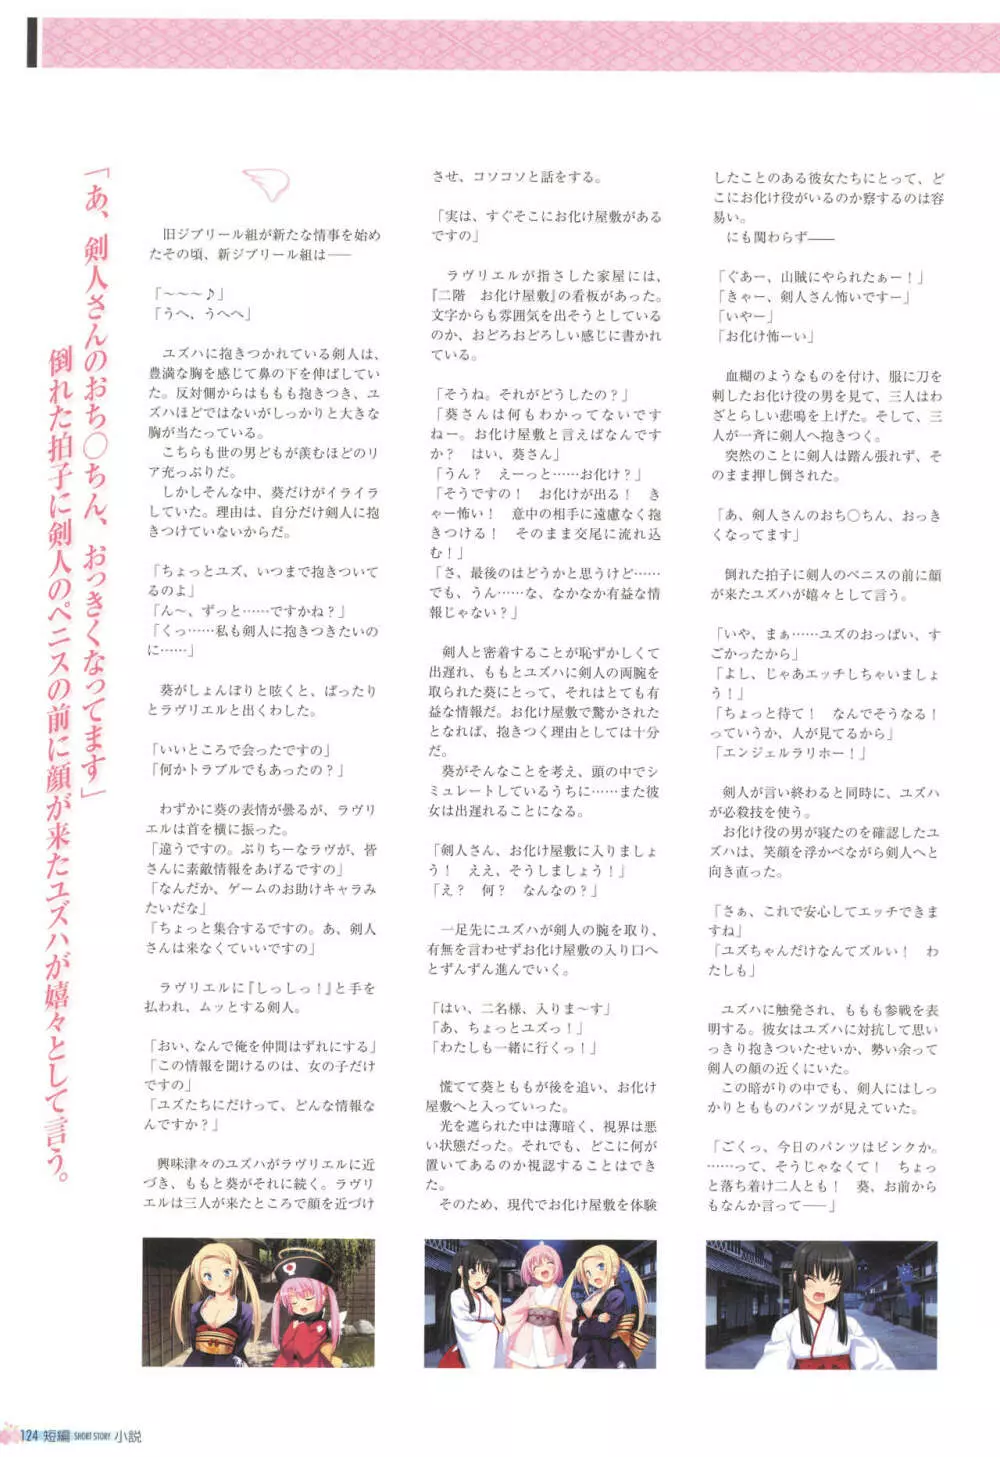 「あ、剣人さんのおち〇ちん、おっきくなってます」
倒れた拍子に剣人のペニスの前に顔が来たユズハが嬉々として言う。
旧ジブリール組が新たな情事を始め
たその頃、新ジブリール組は――
「～～～♪」
「うへ、うへへ」
ユズハに抱きつかれている剣人は、
豊満な胸を感じて鼻の下を伸ばしてい
た。反対側からはももも抱きつき、ユ
ズハほどではないがしっかりと大きな
胸が当たっている。
こちらも世の男どもが羨むほどのリ
ア充っぷりだ。
しかしそんな中、葵だけがイライラ
していた。理由は、自分だけ剣人に抱
きつけていないからだ。
「ちょっとユズ、いつまで抱きついて
るのよ」
「ん～、ずっと……ですかね？」
「くっ……私も剣人に抱きつきたいの
に……」
葵がしょんぼりと呟くと、ばったり
とラヴリエルと出くわした。
「いいところで会ったですの」
「何かトラブルでもあったの？」
わずかに葵の表情が曇るが、ラヴリ
エルは首を横に振った。
「違うですの。ぷりちーなラヴが、皆
さんに素敵情報をあげるですの」
「なんだか、ゲームのお助けキャラみ
たいだな」
「ちょっと集合するですの。あ、剣人
さんは来なくていいですの」
ラヴリエルに『しっしっ！』と手を
払われ、ムッとする剣人。
「おい、なんで俺を仲間はずれにする」
「この情報を聞けるのは、女の子だけ
ですの」
「ユズたちにだけって、どんな情報な
んですか？」
興味津々のユズハがラヴリエルに近
づき、ももと葵がそれに続く。ラヴリ
エルは三人が来たところで顔を近づけ
させ、コソコソと話をする。
「実は、すぐそこにお化け屋敷がある
ですの」
ラヴリエルが指さした家屋には、
『二階　お化け屋敷』の看板があった。
文字からも雰囲気を出そうとしている
のか、おどろおどろしい感じに書かれ
ている。
「そうね。それがどうしたの？」
「葵さんは何もわかってないです
ねー。お化け屋敷と言えばなんです
か？　はい、葵さん」
「うん？　えーっと……お化け？」
「そうですの！　お化けが出る！　き
ゃー怖い！　意中の相手に遠慮なく抱
きつける！　そのまま交尾に流れ込
む！」
「さ、最後のはどうかと思うけど……
でも、うん……な、なかなか有益な情
報じゃない？」
剣人と密着することが恥ずかしくて
出遅れ、ももとユズハに剣人の両腕を
取られた葵にとって、それはとても有
益な情報だ。お化け屋敷で驚かされた
となれば、抱きつく理由としては十分
だ。
葵がそんなことを考え、頭の中でシ
ミュレートしているうちに……また彼
女は出遅れることになる。
「剣人さん、お化け屋敷に入りましょ
う！　ええ、そうしましょう！」
「え？　何？　なんなの？」
一足先にユズハが剣人の腕を取り、
有無を言わせずお化け屋敷の入り口へ
とずんずん進んでいく。
「はい、二名様、入りま～す」
「あ、ちょっとユズっ！」
「わたしも一緒に行くっ！」
慌てて葵とももが後を追い、お化け
屋敷へと入っていった。
光を遮られた中は薄暗く、視界は悪
い状態だった。それでも、どこに何が
置いてあるのか視認することはでき
た。
そのため、現代でお化け屋敷を体験
したことのある彼女たちにとって、ど
こにお化け役がいるのか察するのは容
易い。
にも関わらず――
「ぐあー、山賊にやられたぁー！」
「きゃー、剣人さん怖いですー」
「いやー」
「お化け怖ーい」
血糊のようなものを付け、服に刀を
刺したお化け役の男を見て、三人はわ
ざとらしい悲鳴を上げた。そして、三
人が一斉に剣人へ抱きつく。
突然のことに剣人は踏ん張れず、そ
のまま押し倒された。
「あ、剣人さんのおち〇ちん、おっき
くなってます」
倒れた拍子に剣人のペニスの前に顔
が来たユズハが嬉々として言う。
「いや、まぁ……ユズのおっぱい、す
ごかったから」
「よし、じゃあエッチしちゃいましょ
う！」
「ちょっと待て！　なんでそうなる！
っていうか、人が見てるから」
「エンジェルラリホー！」
剣人が言い終わると同時に、ユズハ
が必殺技を使う。
お化け役の男が寝たのを確認したユ
ズハは、笑顔を浮かべながら剣人へと
向き直った。
「さぁ、これで安心してエッチできま
すね」
「ユズちゃんだけなんてズルい！　わ
たしも」
ユズハに触発され、ももも参戦を表
明する。彼女はユズハに対抗して思い
っきり抱きついたせいか、勢い余って
剣人の顔の近くにいた。
この暗がりの中でも、剣人にはしっ
かりとももののパンツが見えていた。
「ごくっ、今日のパンツはピンクか。
……って、そうじゃなくて！　ちょっ
と落ち着け二人とも！　葵、お前から
もなんか言って――」
124 短編 SHORT STORY 小説